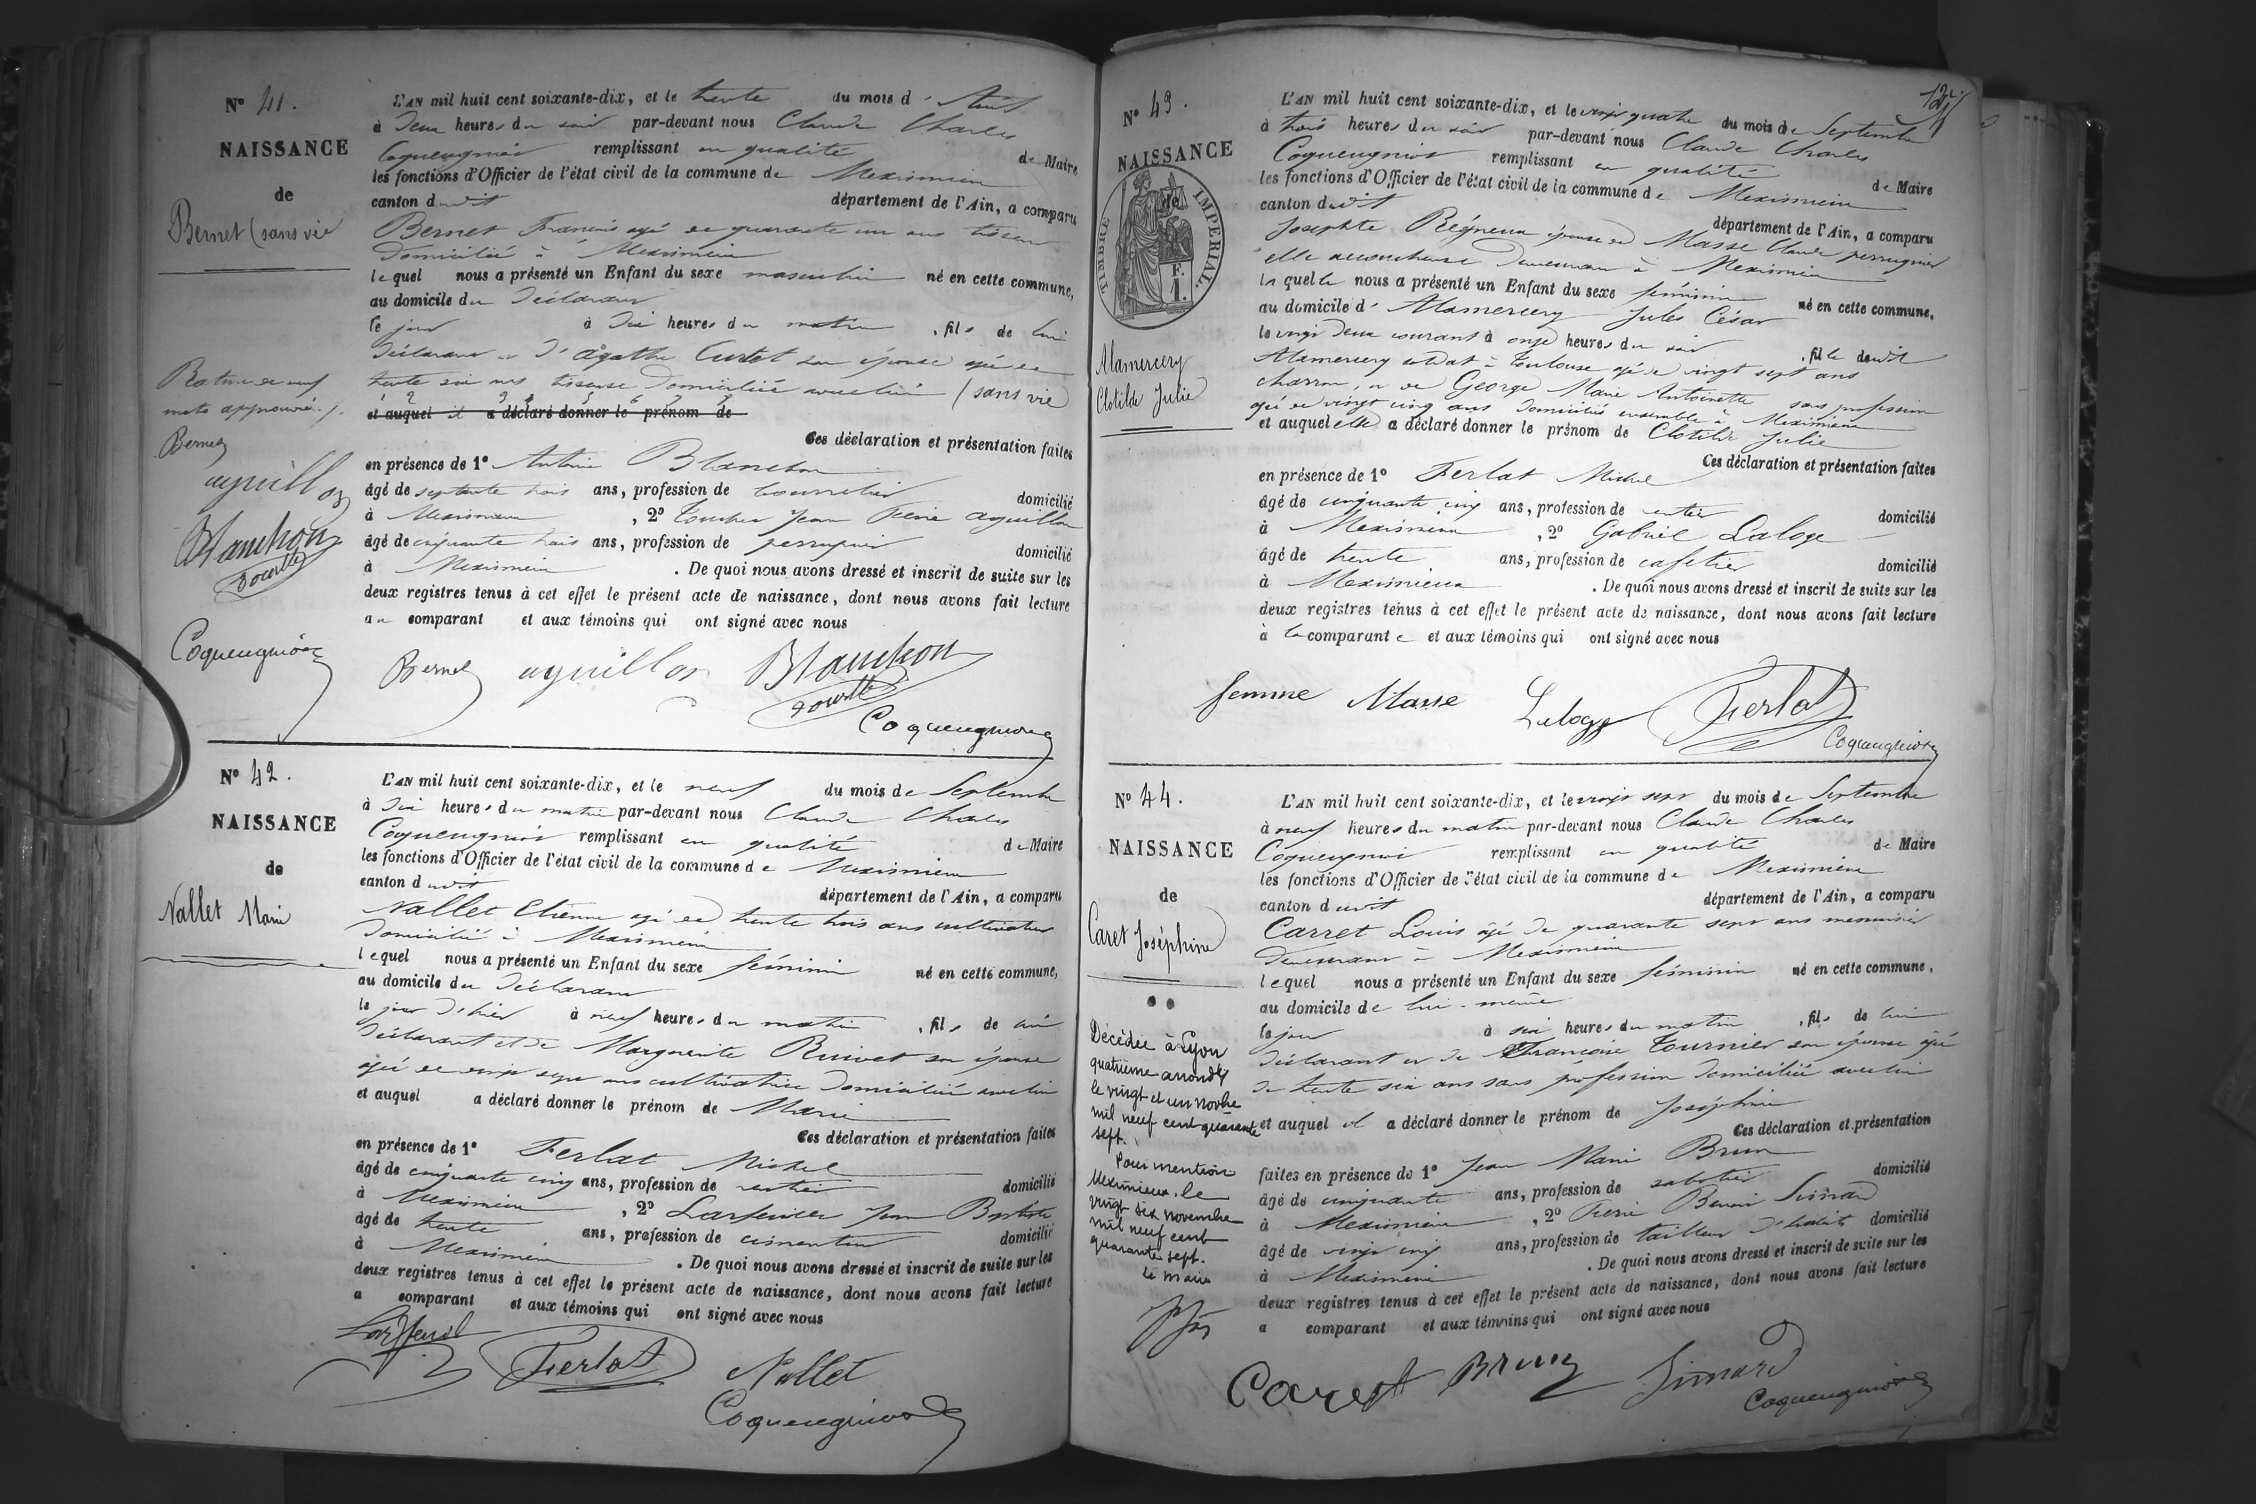 N° 41.
NAISSANCE
de
Bernet (sans vie
L'AN mil huit cent soixante-dix, et le trente du mois d'Août
à deux heures du soir par-devant nous Claude Charles
Coqueugniot remplissant en qualité de Maire
les fonctions d'Officier de l'état civil de la commune de Meximieux
canton dudit département de l'Ain, a comparu
Bernet François agé de quarante un ans tisseur
domicilié à Meximieux
lequel nous a présenté un Enfant du sexe masculin né en cette commune,
au domicile du déclarant
le jour à dix heures du matin, fils de lui
déclarant et d'agathe Curtet son épouse agée de
trente six ans tisseuse domiciliée avec lui (sans vie)
et auquel il a déclaré donner le prénom de
Rature de neuf
mots approuvée.
Bernet
aguillon
Blanchon
Coqueugniot
Ces déclaration et présentation faites
en présence de 1° Antoine Blanchon
âgé de septante trois ans, profession de tonnelier domicilié
à Meximieux, 2° Jean aguillon
âgé de cinquante trois ans, profession de perruquier domicilié
à Meximieux. De quoi nous avons dressé et inscrit de suite sur les
deux registres tenus à cet effet le présent acte de naissance, dont nous avons fait lecture
au comparant et aux témoins qui ont signé avec nous
Bernet aguillon Blanchon
Coqueugniot
N° 42.
NAISSANCE
de
Nallet Marie
L'AN mil huit cent soixante-dix, et le neuf du mois de Septembre
à dix heures du matin par-devant nous Claude Charles
Coqueugniot remplissant en qualité de Maire
les fonctions d'Officier de l'état civil de la commune de Meximieux
canton dudit département de l'Ain, a comparu
Nallet Etienne agé de trente trois ans cultivateur
domicilié à Meximieux
lequel nous a présenté un Enfant du sexe féminin né en cette commune,
au domicile du déclarant
le jour d'hier à neuf heures du matin, fils de lui
déclarant et de Marguerite Ruivet son épouse
agée de vingt sept ans cultivatrice domiciliée avec lui
et auquel a déclaré donner le prénom de Marie
Ces déclaration et présentation faites
en présence de 1° Ferlat Michel
âgé de cinquante cinq ans, profession de rentier domicilié
à Meximieux, 2° Jean Baptiste
âgé de trente ans, profession de domicilié
à Meximieux. De quoi nous avons dressé et inscrit de suite sur les
deux registres tenus à cet effet le présent acte de naissance, dont nous avons fait lecture
a comparant et aux témoins qui ont signé avec nous
Ferlat Nallet
Coqueugniot
N° 43.
NAISSANCE
de
TIMBRE IMPERIAL.
F.
1.
Mamercery
Clotilde Julie
L'AN mil huit cent soixante-dix, et le vingt quatre du mois de Septembre
à trois heures du soir par-devant nous Claude Charles
Coqueugniot remplissant en qualité de Maire
les fonctions d'Officier de l'état civil de la commune de Meximieux
canton dudit département de l'Ain, a comparu
Josephte Régneux épouse de Masse Claude perruquier
elle accoucheuse demeurant à Meximieux
laquelle nous a présenté un Enfant du sexe féminin né en cette commune,
au domicile d'Mamercery Jules César
le vingt deux courant à onze heures du soir, fille dudit
Mamercery soldat à Toulouse agé de vingt sept ans
charron, et de George Marie Antoinette sans profession
agée de vingt cinq ans domiciliés ensemble à Meximieux
et auquel elle a déclaré donner le prénom de Clotilde Julie
Ces déclaration et présentation faites
en présence de 1° Ferlat Michel
âgé de cinquante cinq ans, profession de rentier domicilié
à Meximieux, 2° Gabriel Laloge
âgé de trente ans, profession de cafetier domicilié
à Meximieux. De quoi nous avons dressé et inscrit de suite sur les
deux registres tenus à cet effet le présent acte de naissance, dont nous avons fait lecture
à la comparante et aux témoins qui ont signé avec nous
femme Masse Laloge Ferlat
Coqueugniot
N° 44.
NAISSANCE
de
Caret Joséphine
Décédée à Lyon
quatrième arrondt
le vingt et un novbre
mil neuf cent quarante
sept.
Pour mention
Meximieux, le
vingt six novembre
mil neuf cent
quarante sept.
le Maire
L'AN mil huit cent soixante-dix, et le vingt sept du mois de Septembre
à neuf heures du matin par-devant nous Claude Charles
Coqueugniot remplissant en qualité de Maire
les fonctions d'Officier de l'état civil de la commune de Meximieux
canton dudit département de l'Ain, a comparu
Carret Louis âgé de quarante sept ans menuisier
demeurant à Meximieux
lequel nous a présenté un Enfant du sexe féminin né en cette commune,
au domicile de lui-même
le jour à six heures du matin, fils de lui
déclarant et de Françoise Tournier son épouse agée
de trente six ans sans profession domiciliée avec lui
et auquel il a déclaré donner le prénom de Joséphine
Ces déclaration et présentation
faites en présence de 1° Jean Marie Brun
âgé de cinquante ans, profession de sabotier domicilié
à Meximieux, 2° Benoit Simard
âgé de vingt cinq ans, profession de tailleur d'habits domicilié
à Meximieux. De quoi nous avons dressé et inscrit de suite sur les
deux registres tenus à cet effet le présent acte de naissance, dont nous avons fait lecture
a comparant et aux témoins qui ont signé avec nous
Caret Brun Simard
Coqueugniot